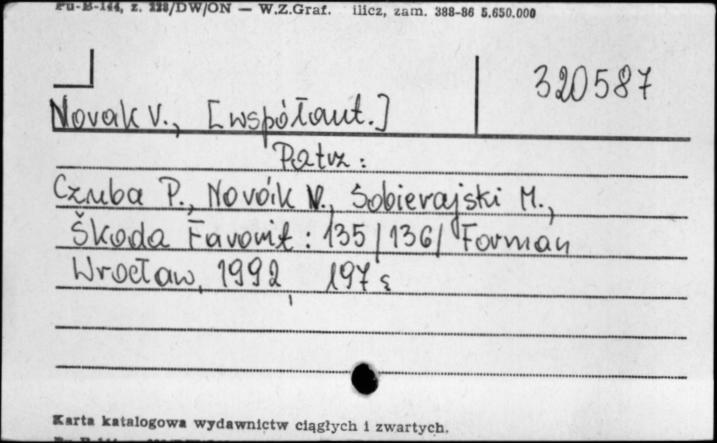 Pu-B-144, z. 228/DW/ON — W.Z.Graf. ilicz, zam. 388-86 5.650.000
320587
Novak V., [współaut.]
Patrz:
Czuba P., Novák V., Sobierajski M.,
Škoda Favorit: 135/136/ Forman
Wrocław, 1992, 197 s
Karta katalogowa wydawnictw ciągłych i zwartych.